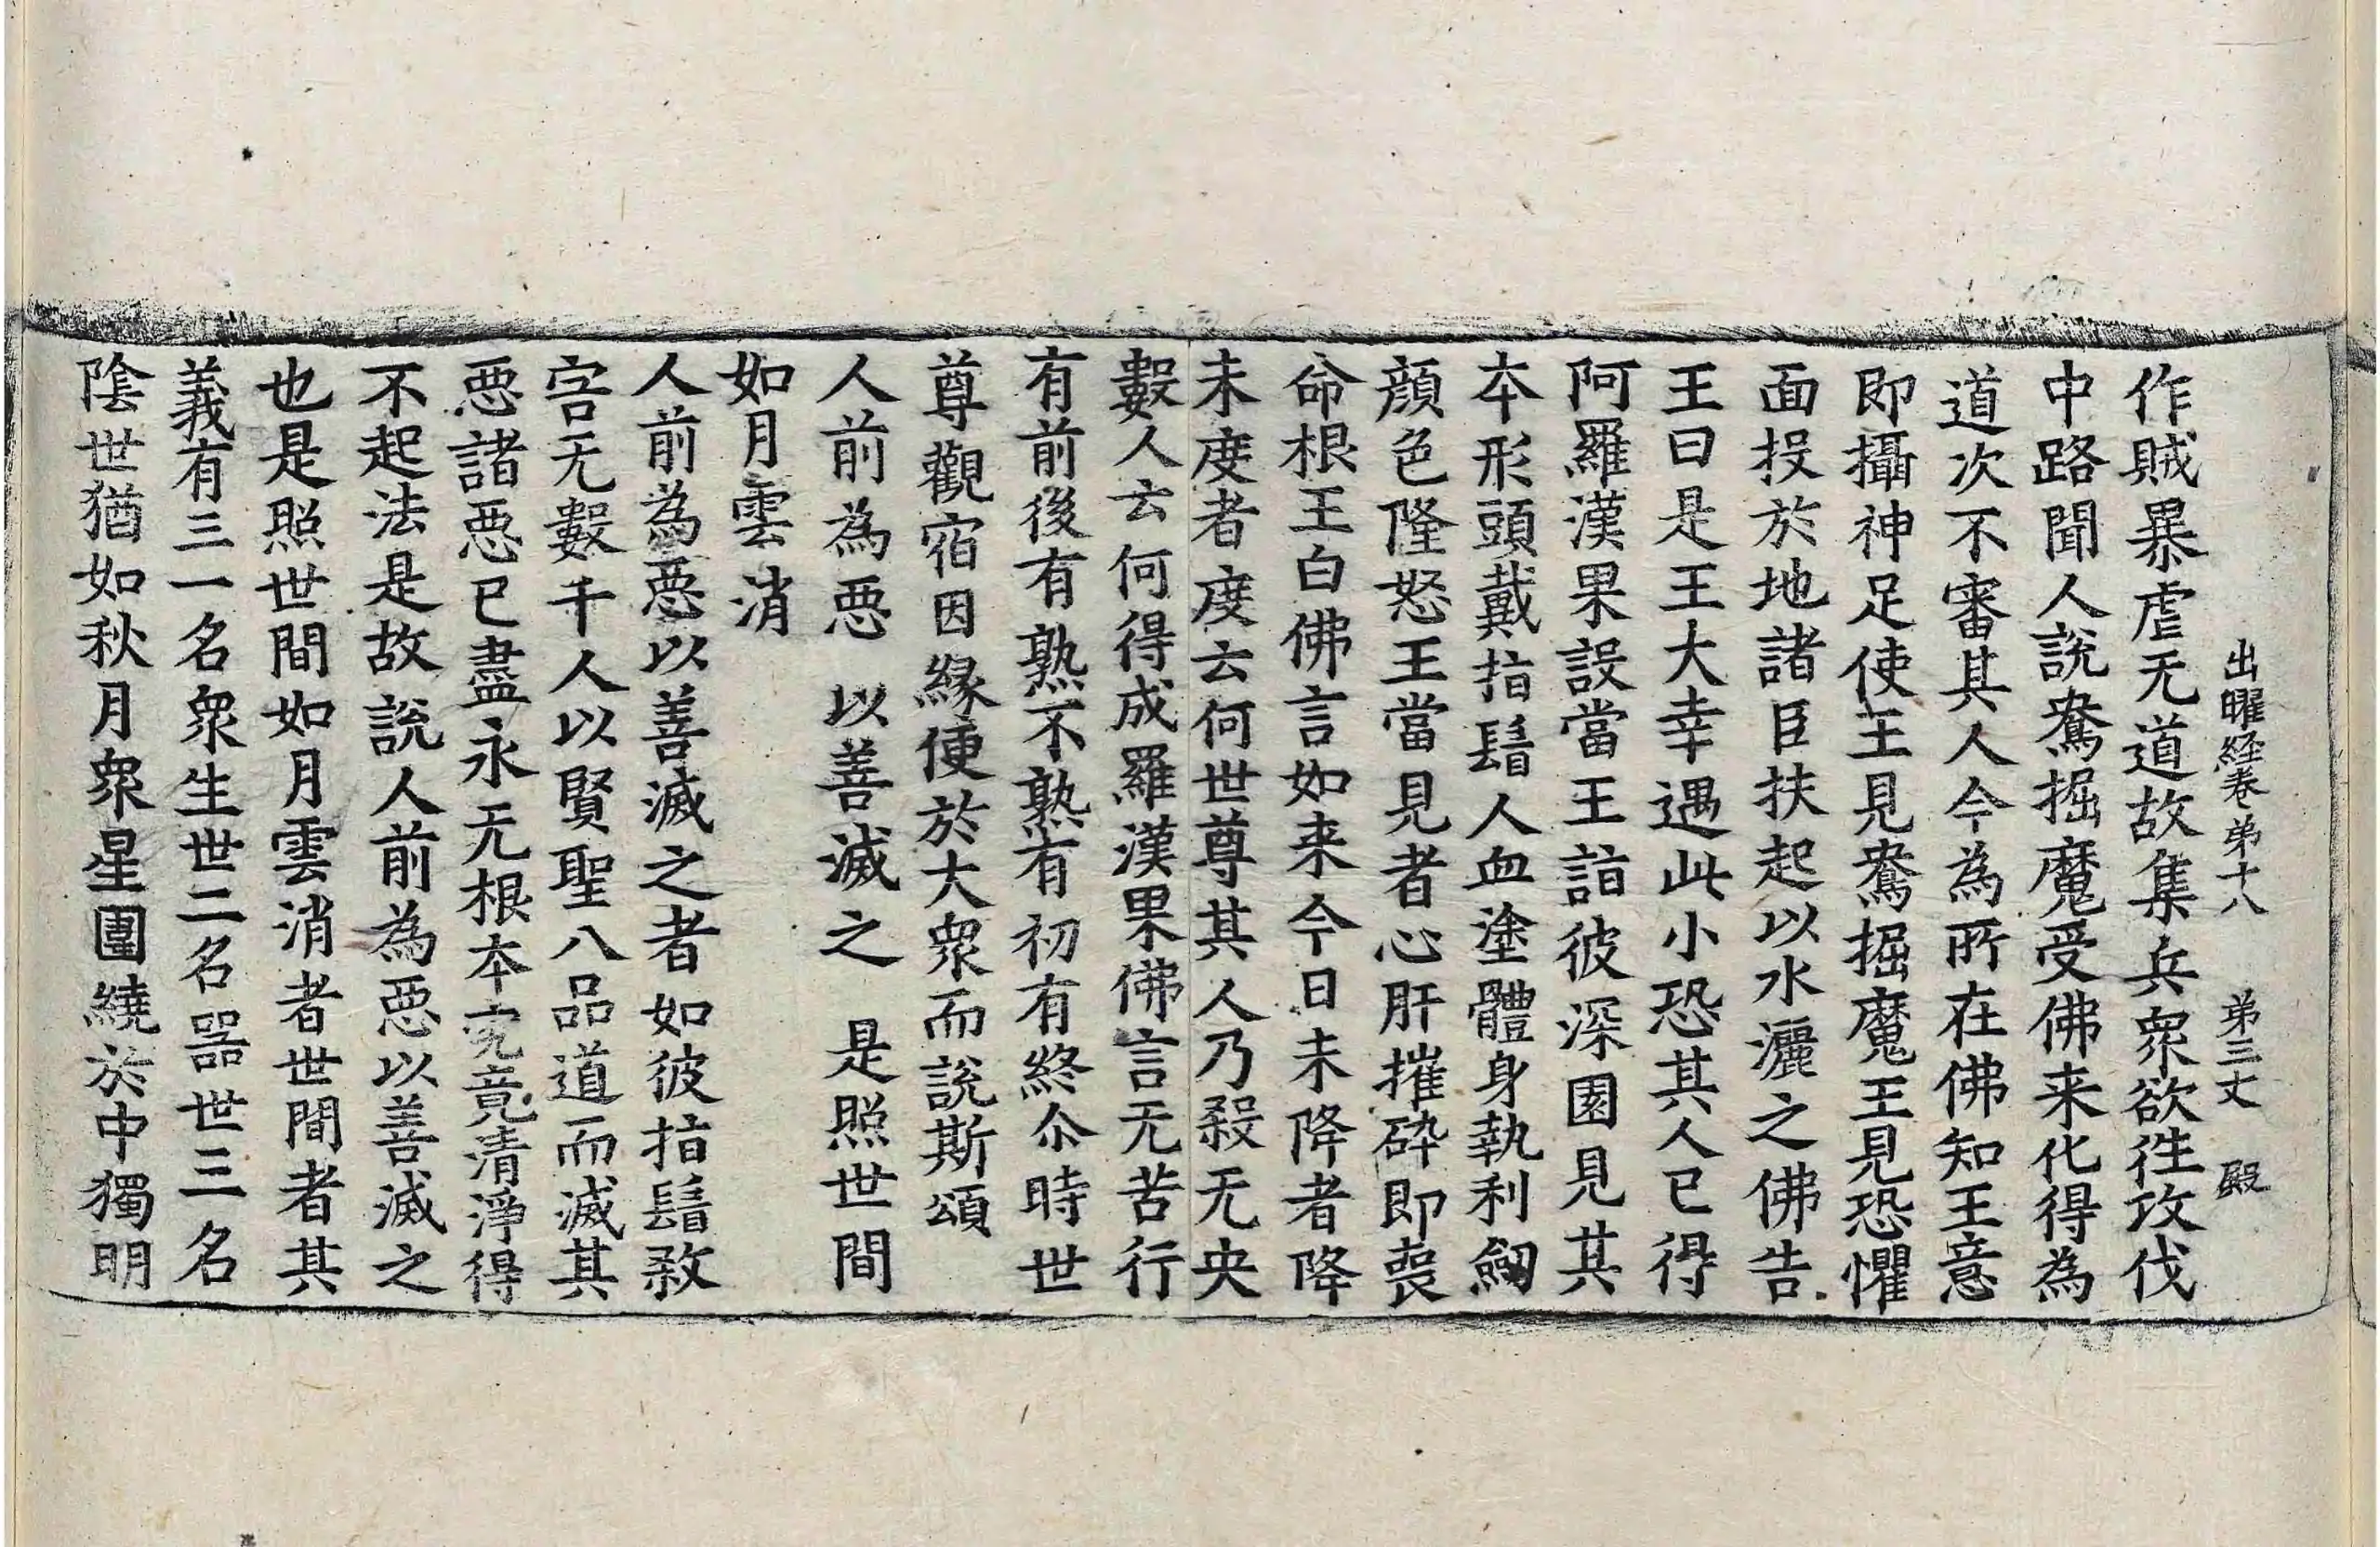 出曜経卷弟十八　弟三丈　殿
作賊暴虐无道故集兵衆欲徃攻伐
中路聞人說鴦掘魔受佛来化得為
道次不審其人今為所在佛知王意
即攝神足使王見鴦掘魔王見恐懼
面投於地諸臣扶起以水灑之佛告
王曰是王大幸遇此小恐其人已得
阿羅漢果設當王詣彼深園見其
本形頭戴指鬘人血塗體身執利劒
顏色隆怒王當見者心肝摧碎即喪
命根王白佛言如来今日未降者降
未度者度云何世尊其人乃殺无央
數人云何得成羅漢果佛言无苦行
有前後有熟不熟有初有終尒時世
尊觀宿因緣便於大衆而說斯頌
人前為惡　以善滅之　是照世間
如月雲消
人前為惡以善滅之者如彼指鬘煞
害无數千人以賢聖八品道而滅其
惡諸惡已盡永无根本究竟清淨得
不起法是故說人前為惡以善滅之
也是照世間如月雲消者世間者其
義有三一名衆生世二名器世三名
陰世猶如秋月衆星圍繞於中獨明